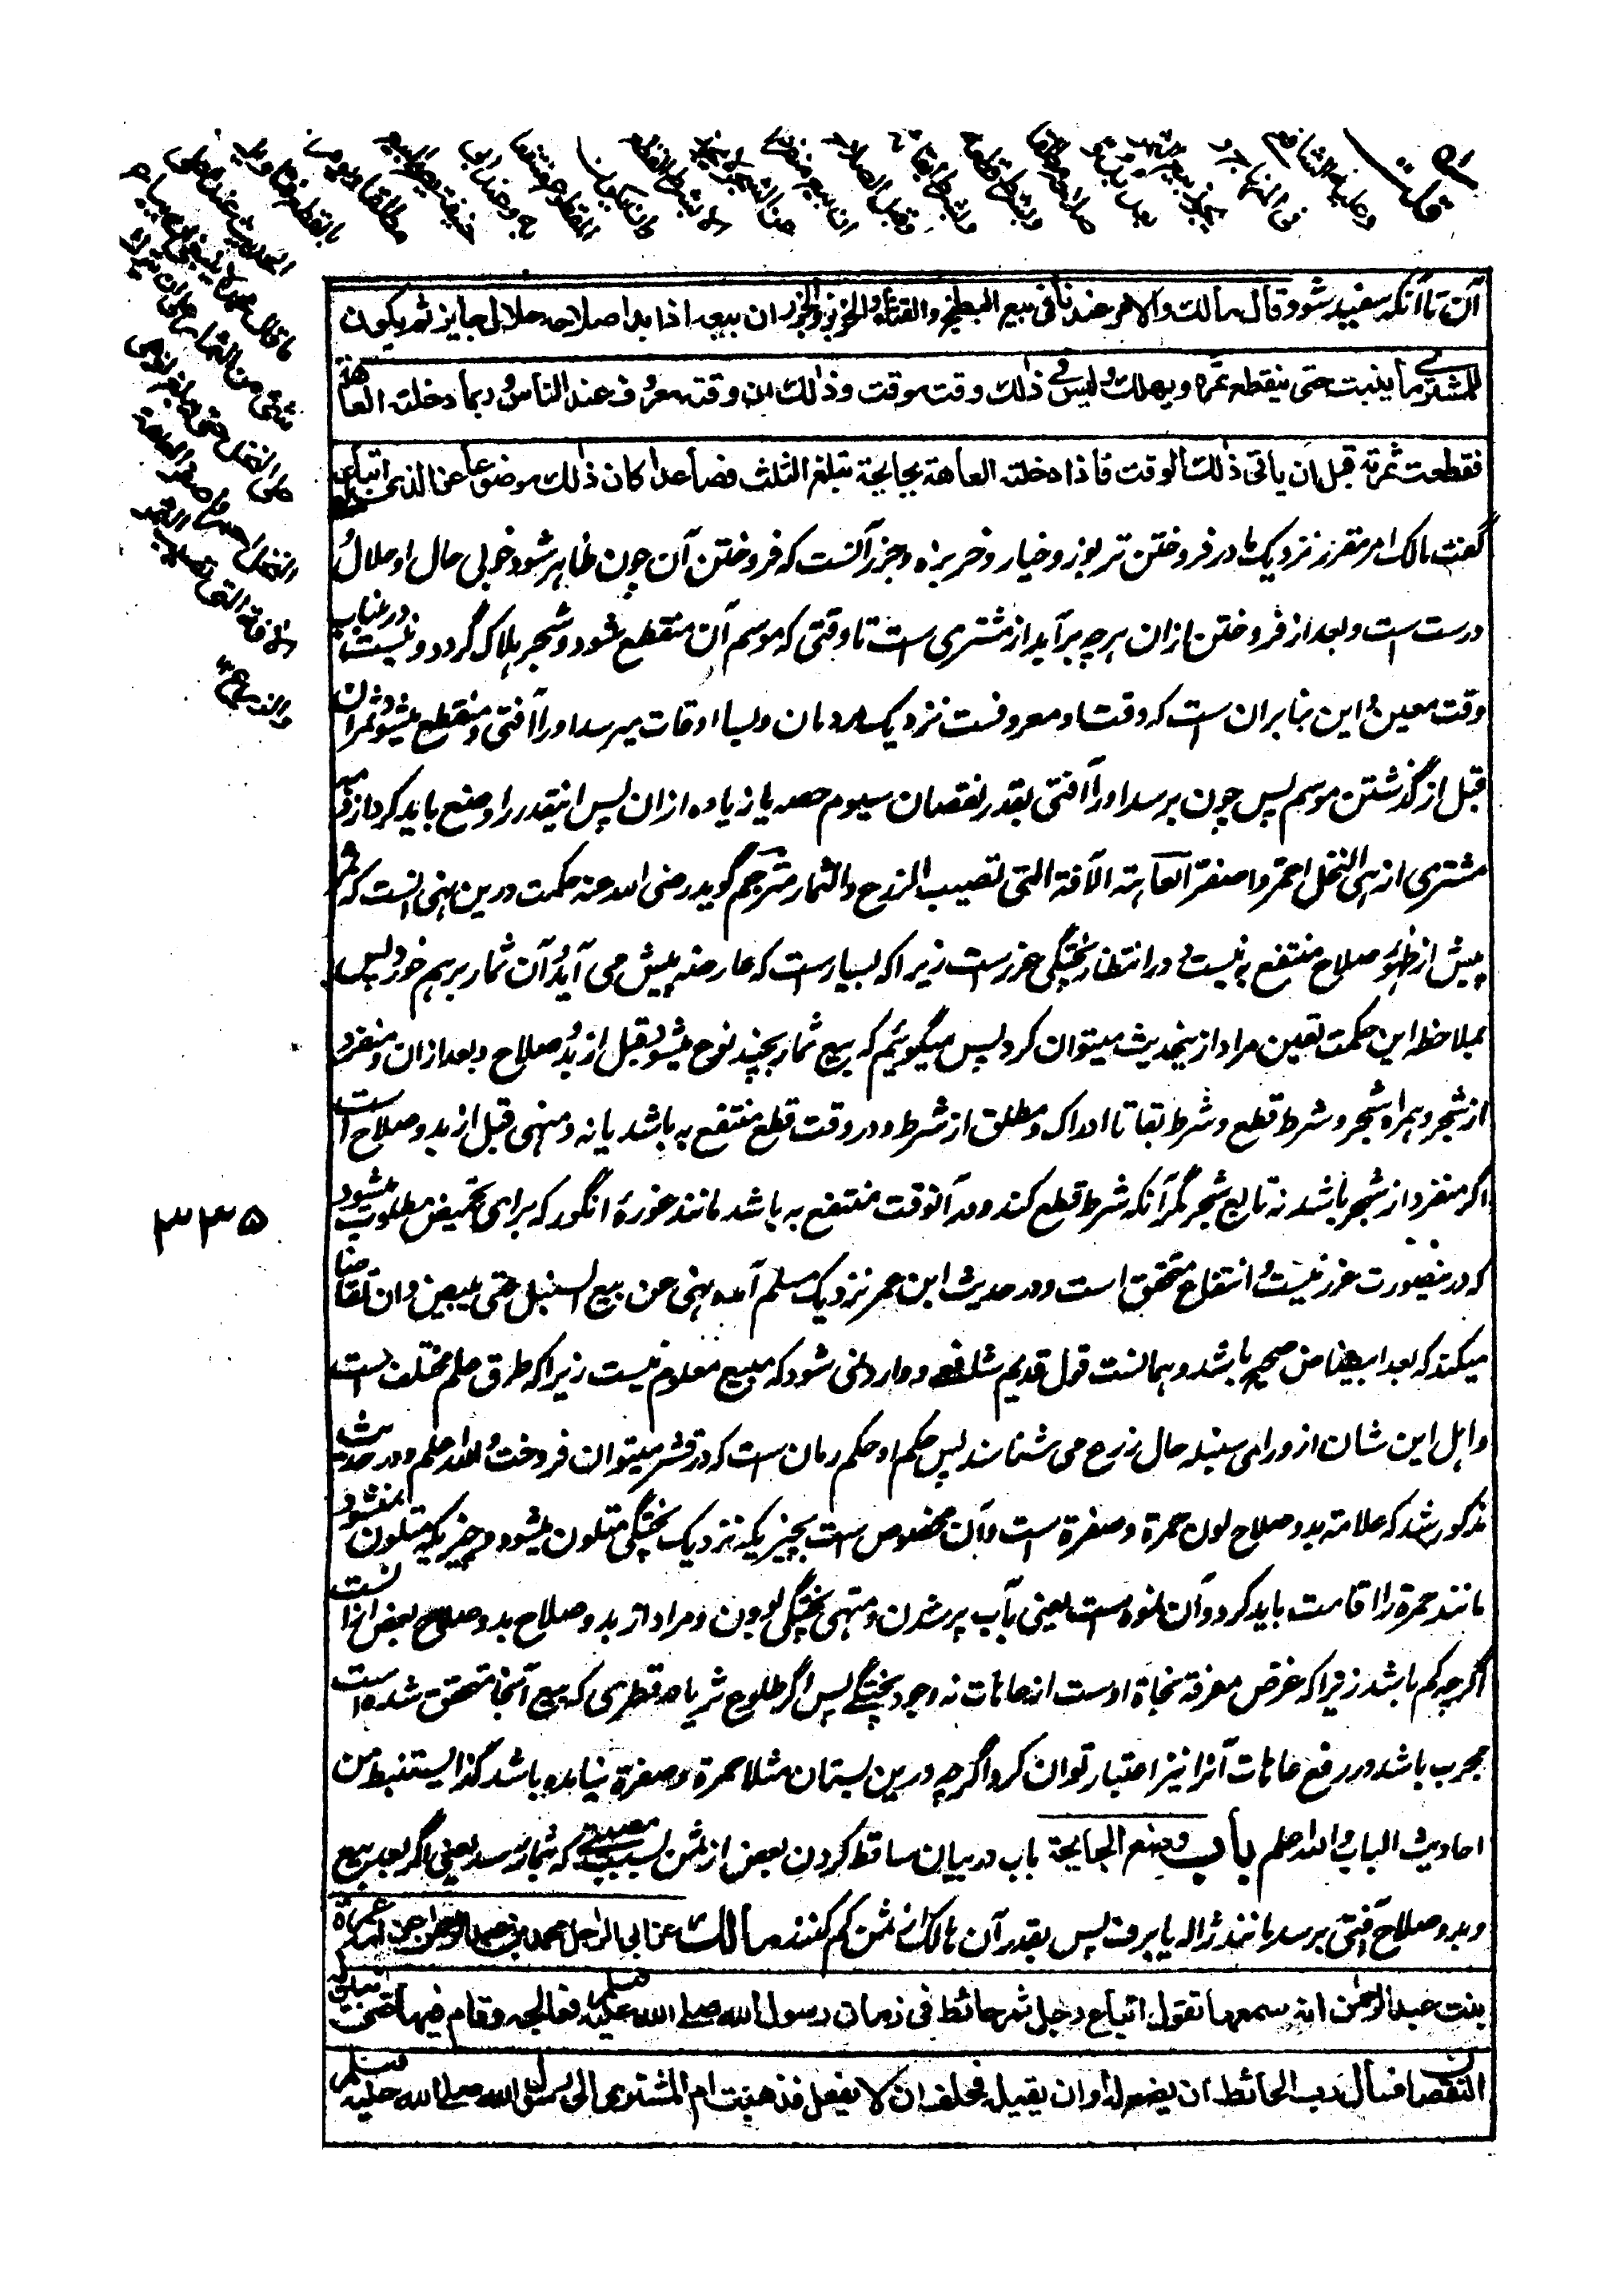 آن تا آنکه سفید شود قال مالك والامر عندنا فى بيع البطيخ والقثاء والخربز والجزر ان بيعه اذا بدا صلاحه حلال جايز ثم يكون
للمشترى ما ينبت حتى ينقطع ثمره ويهلك وليس فى ذلك وقت موقت وذلك ان وقته معروف عند الناس وربما دخلته العاهة
فقطعت ثمرته قبل ان ياتى ذلك الوقت فاذا دخلته العاهة بجايحة تبلغ الثلث فصاعدا كان ذلك موضوعا عن الذى ابتاعه
گفت مالک امر مقرر نزدیک ما در فروختن تربوز و خیار و خربزه و جزر آنست که فروختن آن چون ظاهر شود خوبی حال او حلال
درست ست و بعد از فروختن ازان هرچه برآید از مشتری ست تا وقتی که موسم آن منقطع شود و شجر هلاک گردد و نیست درینباب
وقت معین و این بنابران ست که وقت او معروفست نزدیک مردمان و بسا اوقات میرسد او را آفتی و منقطع میشود ثمر آن
قبل از گذشتن موسم پس چون برسد او را آفتی بقدر نقصان سیوم حصه یا زیاده ازان پس اینقدر را وضع باید کرد از ذمه
مشتری ازهى النخل احمر واصفر العاهة الآفة التى تصيب الزرع والثمار مترجم گوید رضی الله عنه حکمت درین نهی آنست که ثمر
پیش از ظهور صلاح منتفع به نیست و در انتظار پختگی غررست زیرا که بسیارست که عارضه پیش می آید و آن ثمار برهم خورد پس
بملاحظه این حکمت تعین مراد ازینحدیث میتوان کرد پس میگوئیم که بیع ثمار بچند نوع میشود قبل از بدو صلاح و بعد ازان و منفرد
از شجر و همراه شجر و شرط قطع و شرط بقا تا ادراک و مطلق از شرط و در وقت قطع منتفع به باشد یا نه و منهی قبل از بدو صلاح است
اگر منفرد از شجر باشد نه تابع شجر مگر آنکه شرط قطع کند و در آنوقت منتفع به باشد مانند غورهٔ انگور که برای تحمیض مطلوب میشود
که درینصورت غرر نیست و انتفاع متحقق است و در حدیث ابن عمر نزدیک مسلم آمده نهى عن بيع السنبل حتى يبيض و ان تقاضا
میکند که بعد ابیضاض صحیح باشد و همانست قول قدیم شافعی و وارد نمی شود که مبیع معلوم نیست زیرا که طرق علم مختلف است
و اهل این شان از ورای سنبله حال زرع می شناسند پس حکم او حکم رمان ست که در قشر میتوان فروخت والله اعلم و در حدیث
مذکور شد که علامة بدو صلاح لون حمرة و صفرة ست و آن مخصوص ست بچیزیکه نزدیک پختگی متلون میشود و چیزیکه متلون نمیشود
مانند حمرة را اقامت باید کرد و آن نموه ست یعنی بآب پر شدن و منتهی پختگی بودن و مراد از بدو صلاح بدو صلاح بعض آنست
اگرچه کم باشد زیرا که غرض معرفة نجاة اوست از عاهات نه وجود پختگی پس اگر طلوع ثریا در قطری که بیع آنجا متحقق شده است
مجرب باشد در رفع عاهات آنرا نیز اعتبار توان کرد اگرچه درین بستان مثلا حمرة و صفرة نیامده باشد كذا يستنبط من
احاديث الباب والله اعلم باب وضع الجايحة باب در بیان ساقط کردن بعض از ثمن بسبب مصیبتے که بثمار رسد یعنی اگر بعد بیع
و بدو صلاح آفتی برسد مانند ژاله یا برف پس بقدر آن مالک از ثمن کم کنند مالك عن ابى الرجال محمد بن عبد الرحمن عن امه عمرة
بنت عبد الرحمن انه سمعها تقول ابتاع رجل ثمر حائط فى زمان رسول الله صلى الله عليه وسلم فعالجه وقام فيه حتى تبين له
النقصان فسأل رب الحائط ان يضع له او ان يقيله فحلف ان لا يفعل فذهبت ام المشترى الى رسول الله صلى الله عليه وسلم
۳۳۵